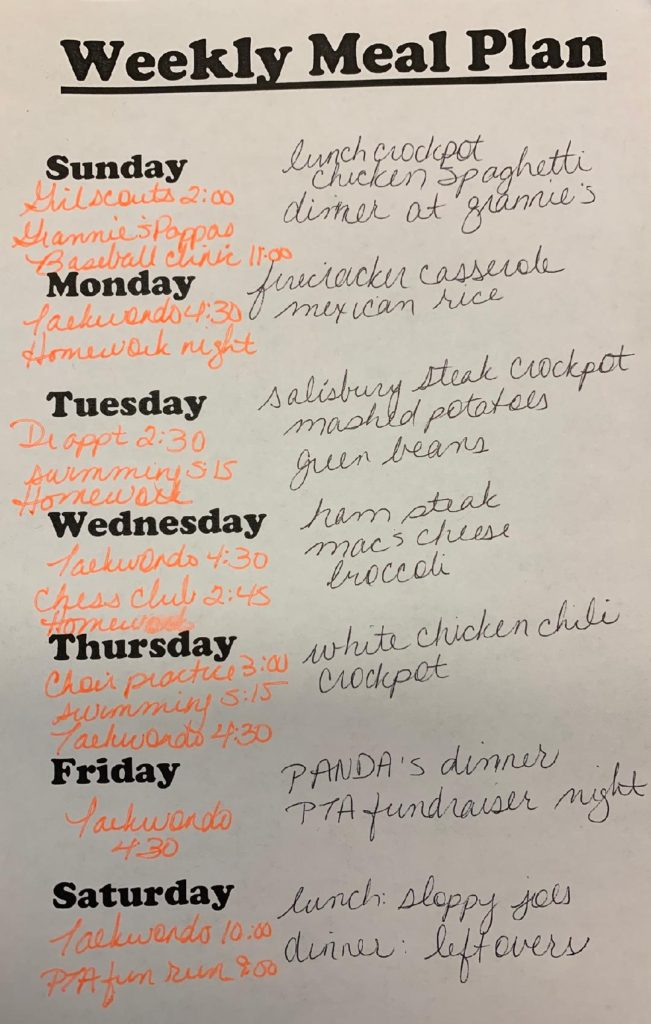 Weekly Meal Plan
Sunday
Girlscouts 2:00
Grannie's Pappas
Baseball clinic 11:00
lunch crockpot
chicken spaghetti
dinner at grannie's
Monday
Taekwondo 4:30
Homework night
firecracker casserole
mexican rice
Tuesday
Dr appt 2:30
swimming 5:15
Homework
salisbury steak crockpot
mashed potatoes
green beans
Wednesday
Taekwondo 4:30
Chess Club 2:45
Homework
ham steak
mac's cheese
broccoli
Thursday
Choir practice 3:00
swimming 5:15
Taekwondo 4:30
white chicken chili
crockpot
Friday
Taekwondo
4:30
PANDA's dinner
PTA fundraiser night
Saturday
Taekwondo 10:00
PTA fun run 9:00
lunch: sloppy joes
dinner: leftovers